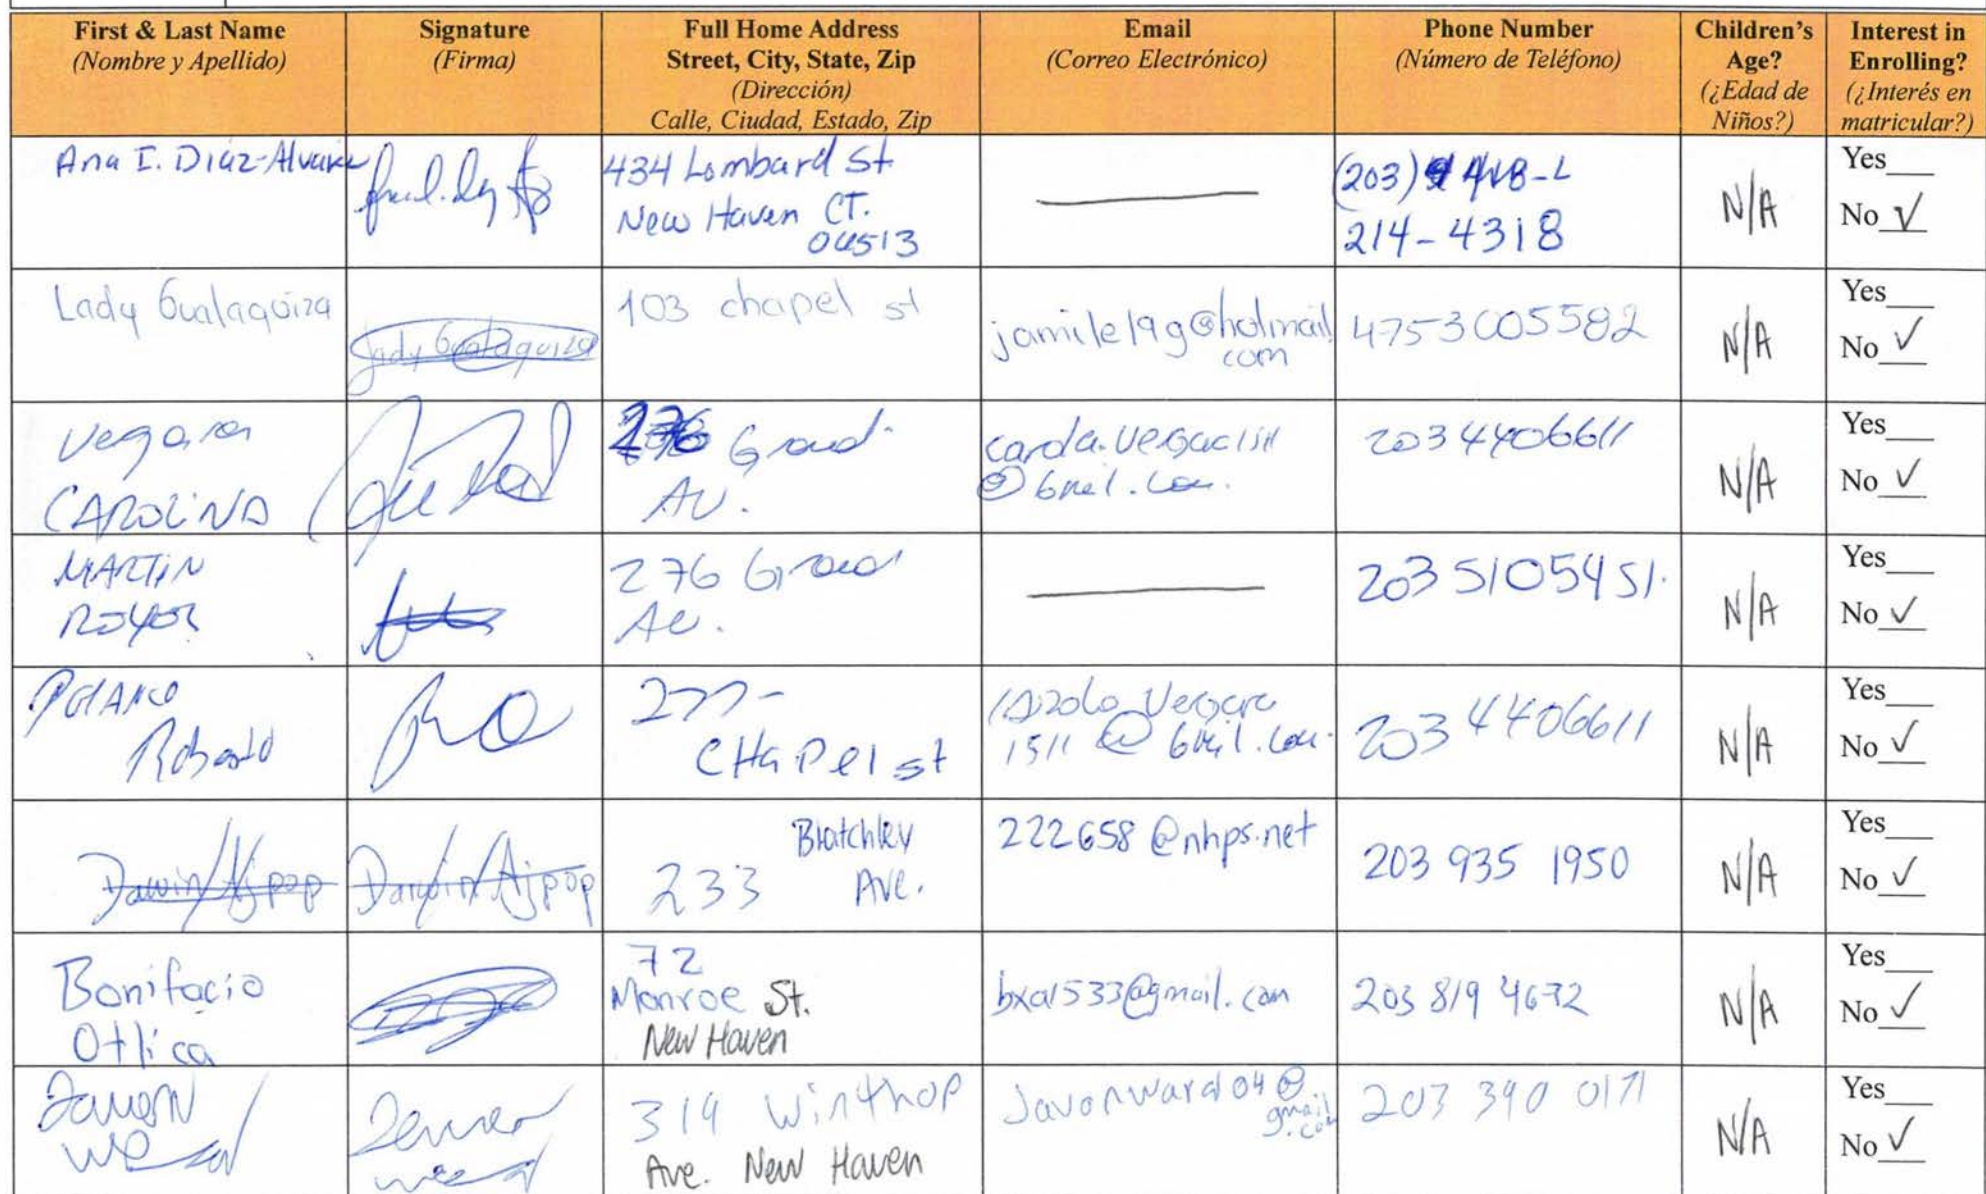 First & Last Name
(Nombre y Apellido)
Signature
(Firma)
Full Home Address
Street, City, State, Zip
(Dirección)
Calle, Ciudad, Estado, Zip
Email
(Correo Electrónico)
Phone Number
(Número de Teléfono)
Children's
Age?
(¿Edad de
Niños?)
Interest in
Enrolling?
(¿Interés en
matricular?)
Ana I. Diaz-Alvarez
434 Lombard St
New Haven CT.
06513
(203)
214-4318
N/A
Yes
No ✓
Lady Gualaquiza
Lady Gualaquiza
103 chapel st
jamile19g@hotmail
com
4753005582
N/A
Yes
No ✓
Vegara
CAROLINA
276 Grand
AV.
@Gmail.com.
2034406611
N/A
Yes
No ✓
MARTIN
276 Grand
Av.
203 5105451.
N/A
Yes
No ✓
POLANCO
Roberto
277-
CHaPel st
1511 @ Gmail.com.
203 4406611
N/A
Yes
No ✓
Darwin Ajpop
Darwin Ajpop
233
Blatchley
Ave.
222658 @nhps.net
203 935 1950
N/A
Yes
No ✓
Bonifacio
Otlica
72
Monroe St.
New Haven
bxa1533@gmail.com
203 819 4672
N/A
Yes
No ✓
Javon
319 Winthop
Ave. New Haven
Javonward04@
gmail
.com
203 390 0171
N/A
Yes
No ✓